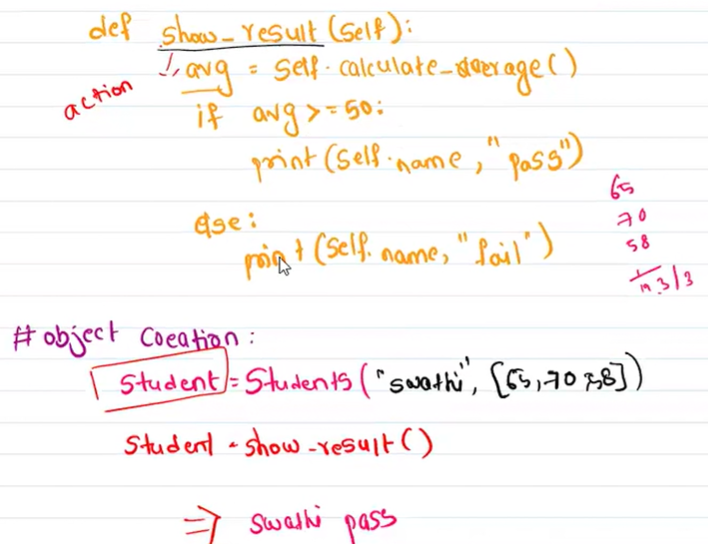 def show_result(self):
action
avg = self.calculate_average()
if avg >= 50:
print(self.name, "pass")
else:
print(self.name, "fail")
65
70
58
/3
# object Creation:
Student = Students("swathi", [65,70,58])
Student.show_result()
⇒ swathi pass